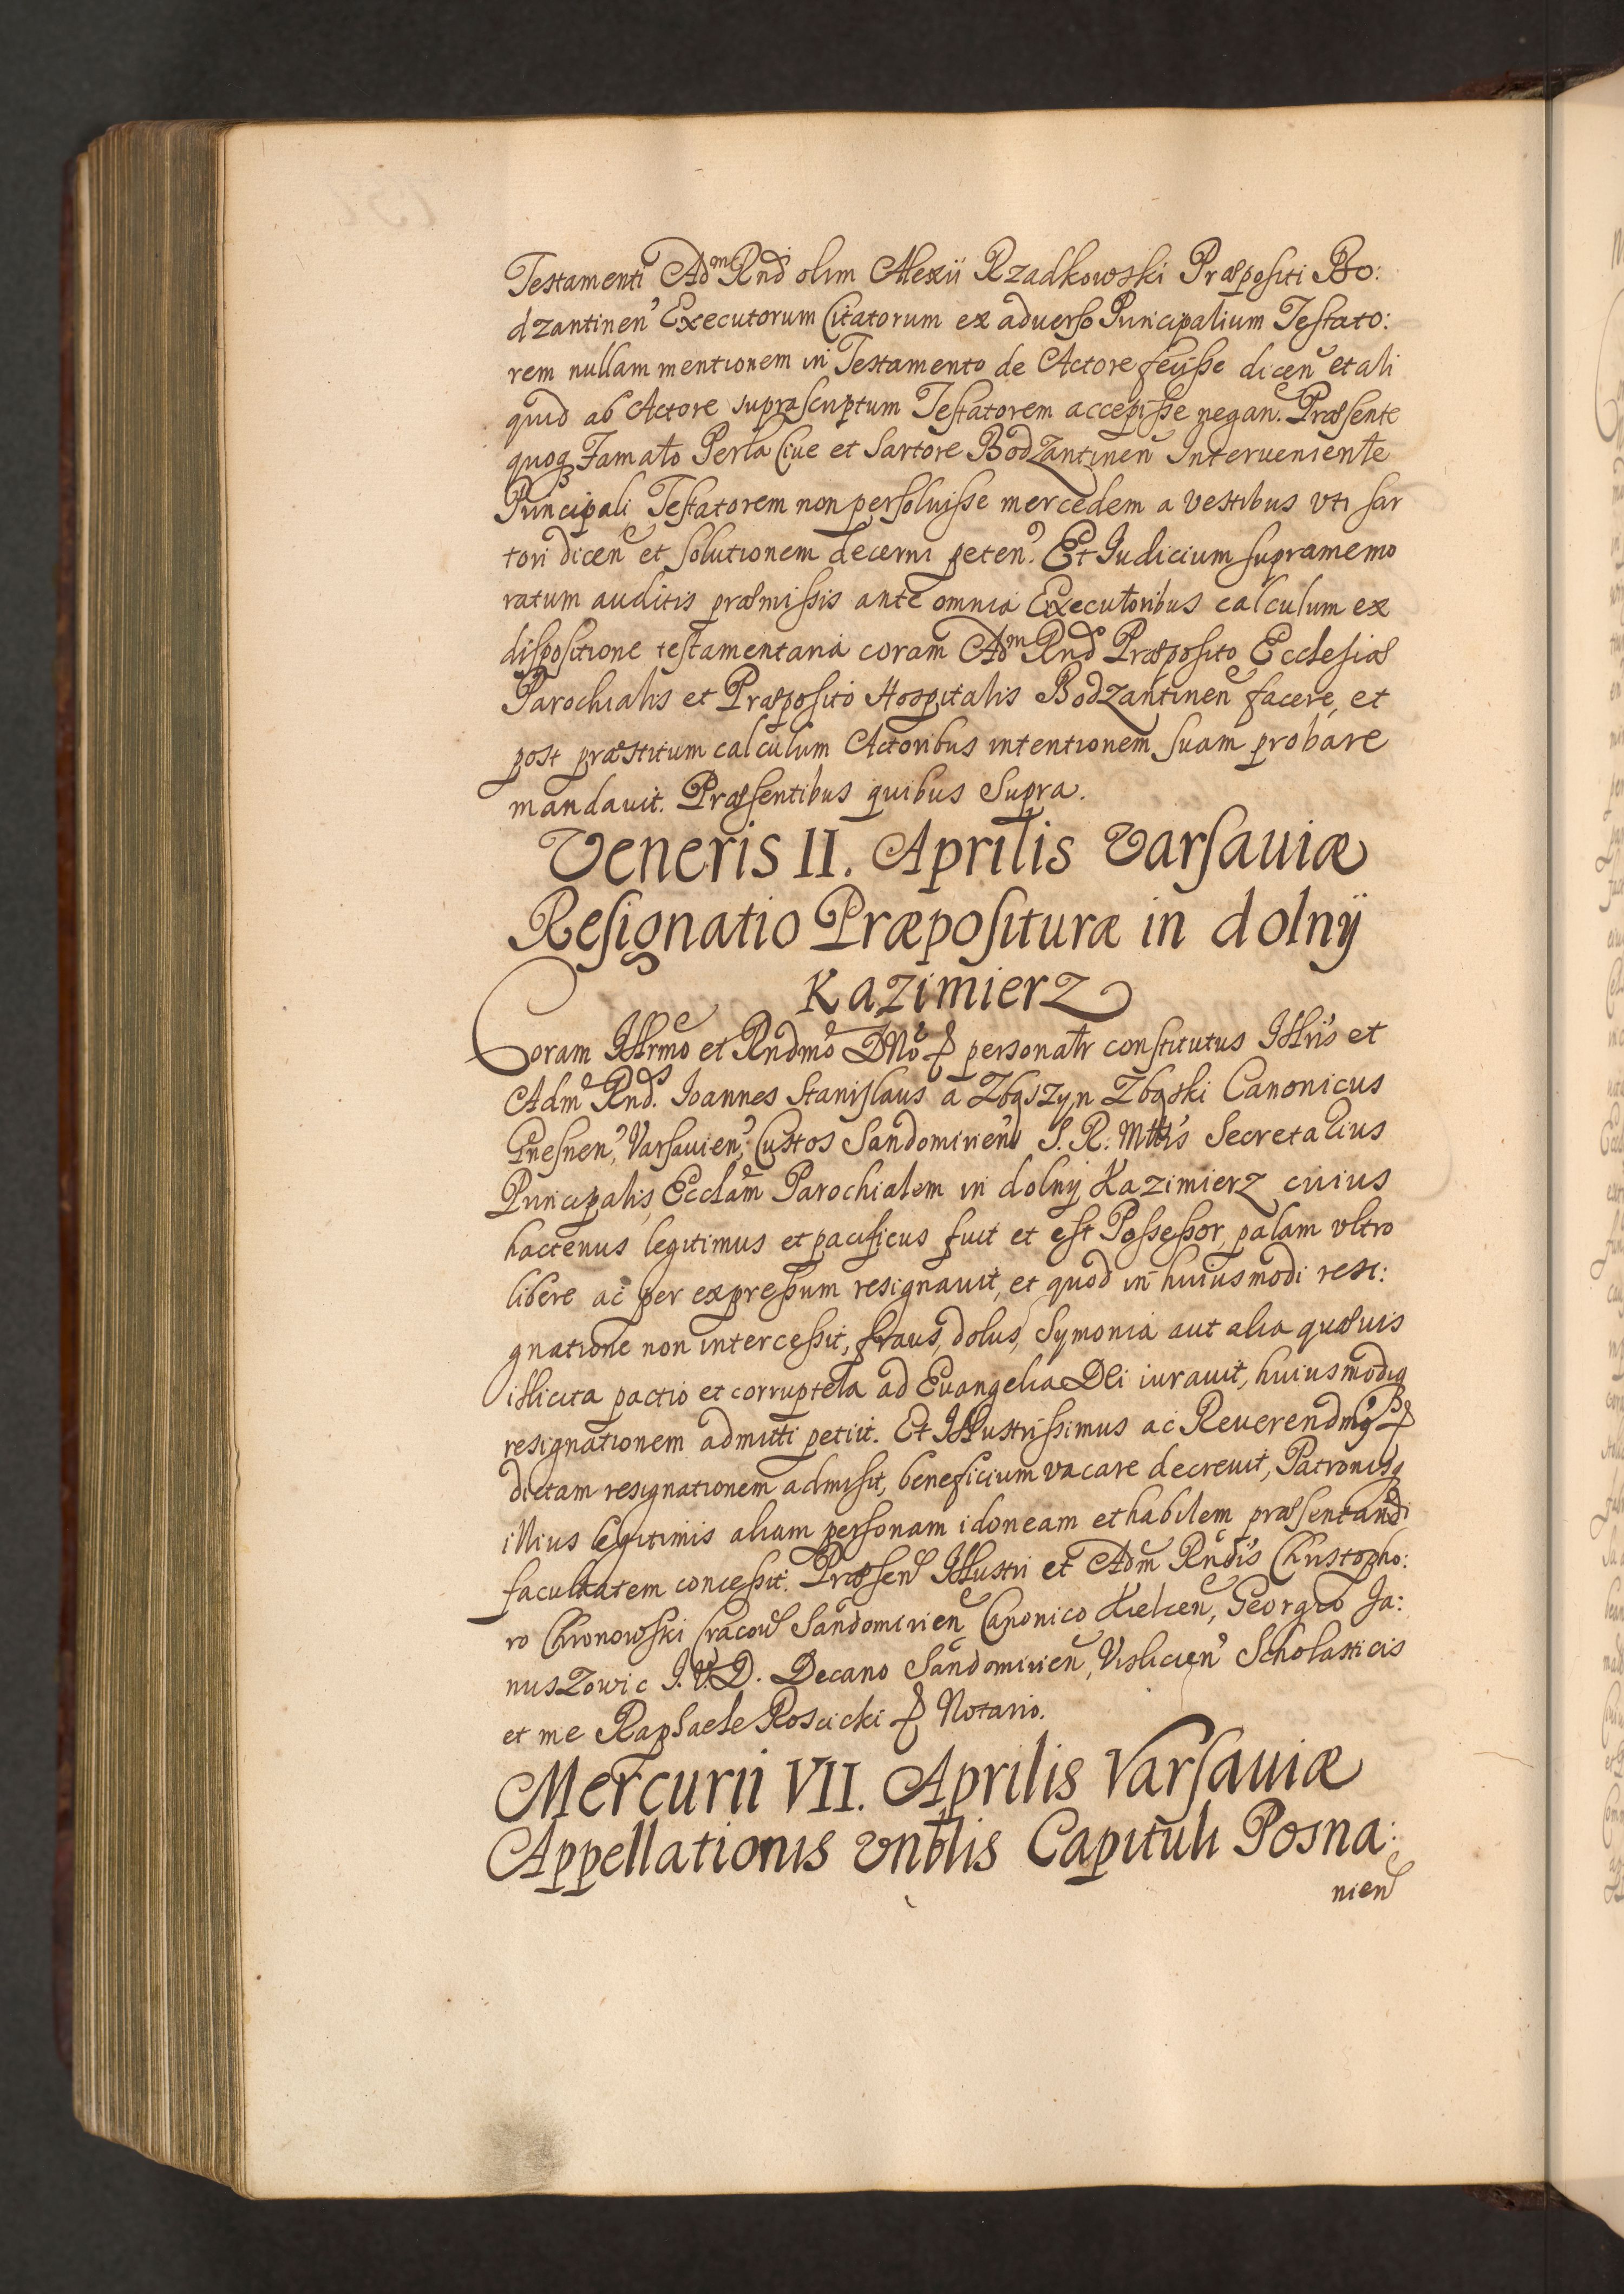 Testamenti Adm Rnd olim Alexii Rzadkowski Præpositi Bo:
dzantinen Executorum Citatorum ex aduerso Principalium Testato:
rem nullam mentionem in Testamento de Actore fecisse dicen et ali
quid ab Actore suprascriptum Testatorem accepisse negan. Præsente
quoq Famato Perla Ciue et Sartore Bodzantinen Interueniente
Principali Testatorem non persoluisse mercedem a vestibus vti sar
tori dicen et solutionem decerni peten. Et Iudicium supramemo
ratum auditis præmissis ante omnia Executoribus calculum ex
dispositione testamentaria coram Adm Rnd Præposito Ecclesiæ
Parochialis et Præposito Hospitalis Bodzantinen facere, et
post præstitum calculum Actoribus intentionem suam probare
mandauit. Præsentibus quibus Supra.
Veneris II. Aprilis Varsauiæ
Resignatio Præposituræ in dolny
Kazimierz
Coram Illrmo et Rndmo Dno personalr constitutus Illris et
Adm Rnd. Ioannes Stanislaus a Zbąszyn Zbąski Canonicus
Gnesnen, Varsauien, Custos Sandomirien S. R. Mttis Secretarius
Principalis Ecclam Parochialem in dolny Kazimierz cuius
hactenus legitimus et pacificus fuit et est Possessor, palam vltro
libere ac per expressum resignauit, et quod in huiusmodi resi:
gnatione non intercessit, fraus, dolus, Symonia aut alia quæuis
illicita pactio et corruptela ad Euangelia Dei iurauit, huiusmodiq
resignationem admitti petiit. Et Illustrissimus ac Reuerendmg
dictam resignationem admisit, beneficium vacare decreuit, Patronisq
illius legitimis aliam personam idoneam et habilem præsentandi
facultatem concessit. Præsen Illustri et Adm Rndis Christopho:
ro Chronowski Cracou Sandomirien Canonico Kielcen, Georgio Ja:
nuszowic I. V. D. Decano Sandomirien, Vislicien Scholasticis
et me Raphaele Roscicki Notario.
Mercurii VII. Aprilis Varsauiæ
Appellationis Vnblis Capituli Posna:
nien